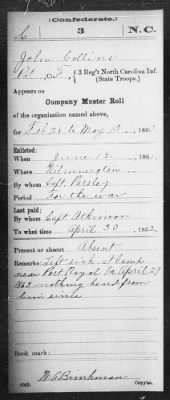 (Confederate.)
C 3 N.C.
John Collins
Pvt, Co. F, 3 Reg't North Carolina Inf.
(State Troops.)
Appears on
Company Muster Roll
of the organization named above,
for Feb 28 to May 13, 186
Enlisted:
When June 12, 1861.
Where Wilmington
By whom Capt. Parsley
Period For the war
Last paid:
By whom Capt Atkinson
To what time April 30, 1862.
Present or absent Absent
Remarks: Left sick at camp
near Port Royal Va April 29
1863 nothing heard from
him since
Book mark:
Copyist.